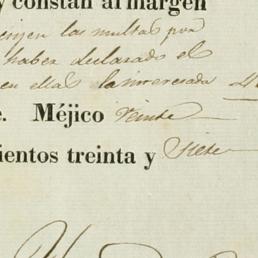 y constan al margen
las multas por
haber declarado el
en ellas la interesada
e. Méjico veinte
ientos treinta y siete